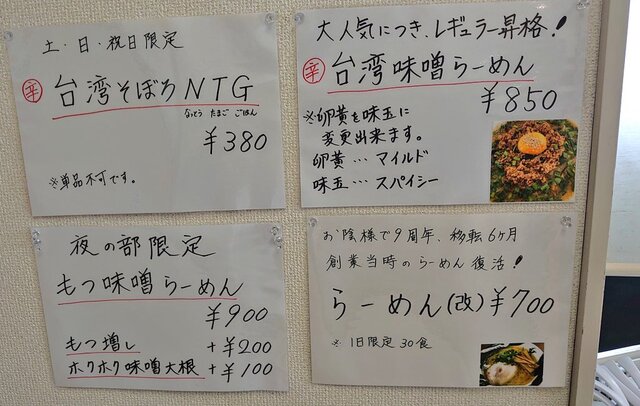 土・日・祝日限定
辛 台湾そぼろNTG
なっとう たまご ごはん
¥380
※単品不可です。
大人気につき、レギュラー昇格!
辛 台湾味噌らーめん
¥850
※卵黄を味玉に
変更出来ます。
卵黄…マイルド
味玉…スパイシー
夜の部限定
もつ味噌らーめん
¥900
もつ増し +¥200
ホクホク味噌大根 +¥100
お陰様で9周年、移転6ヶ月
創業当時のらーめん復活!
らーめん(改)¥700
※1日限定30食